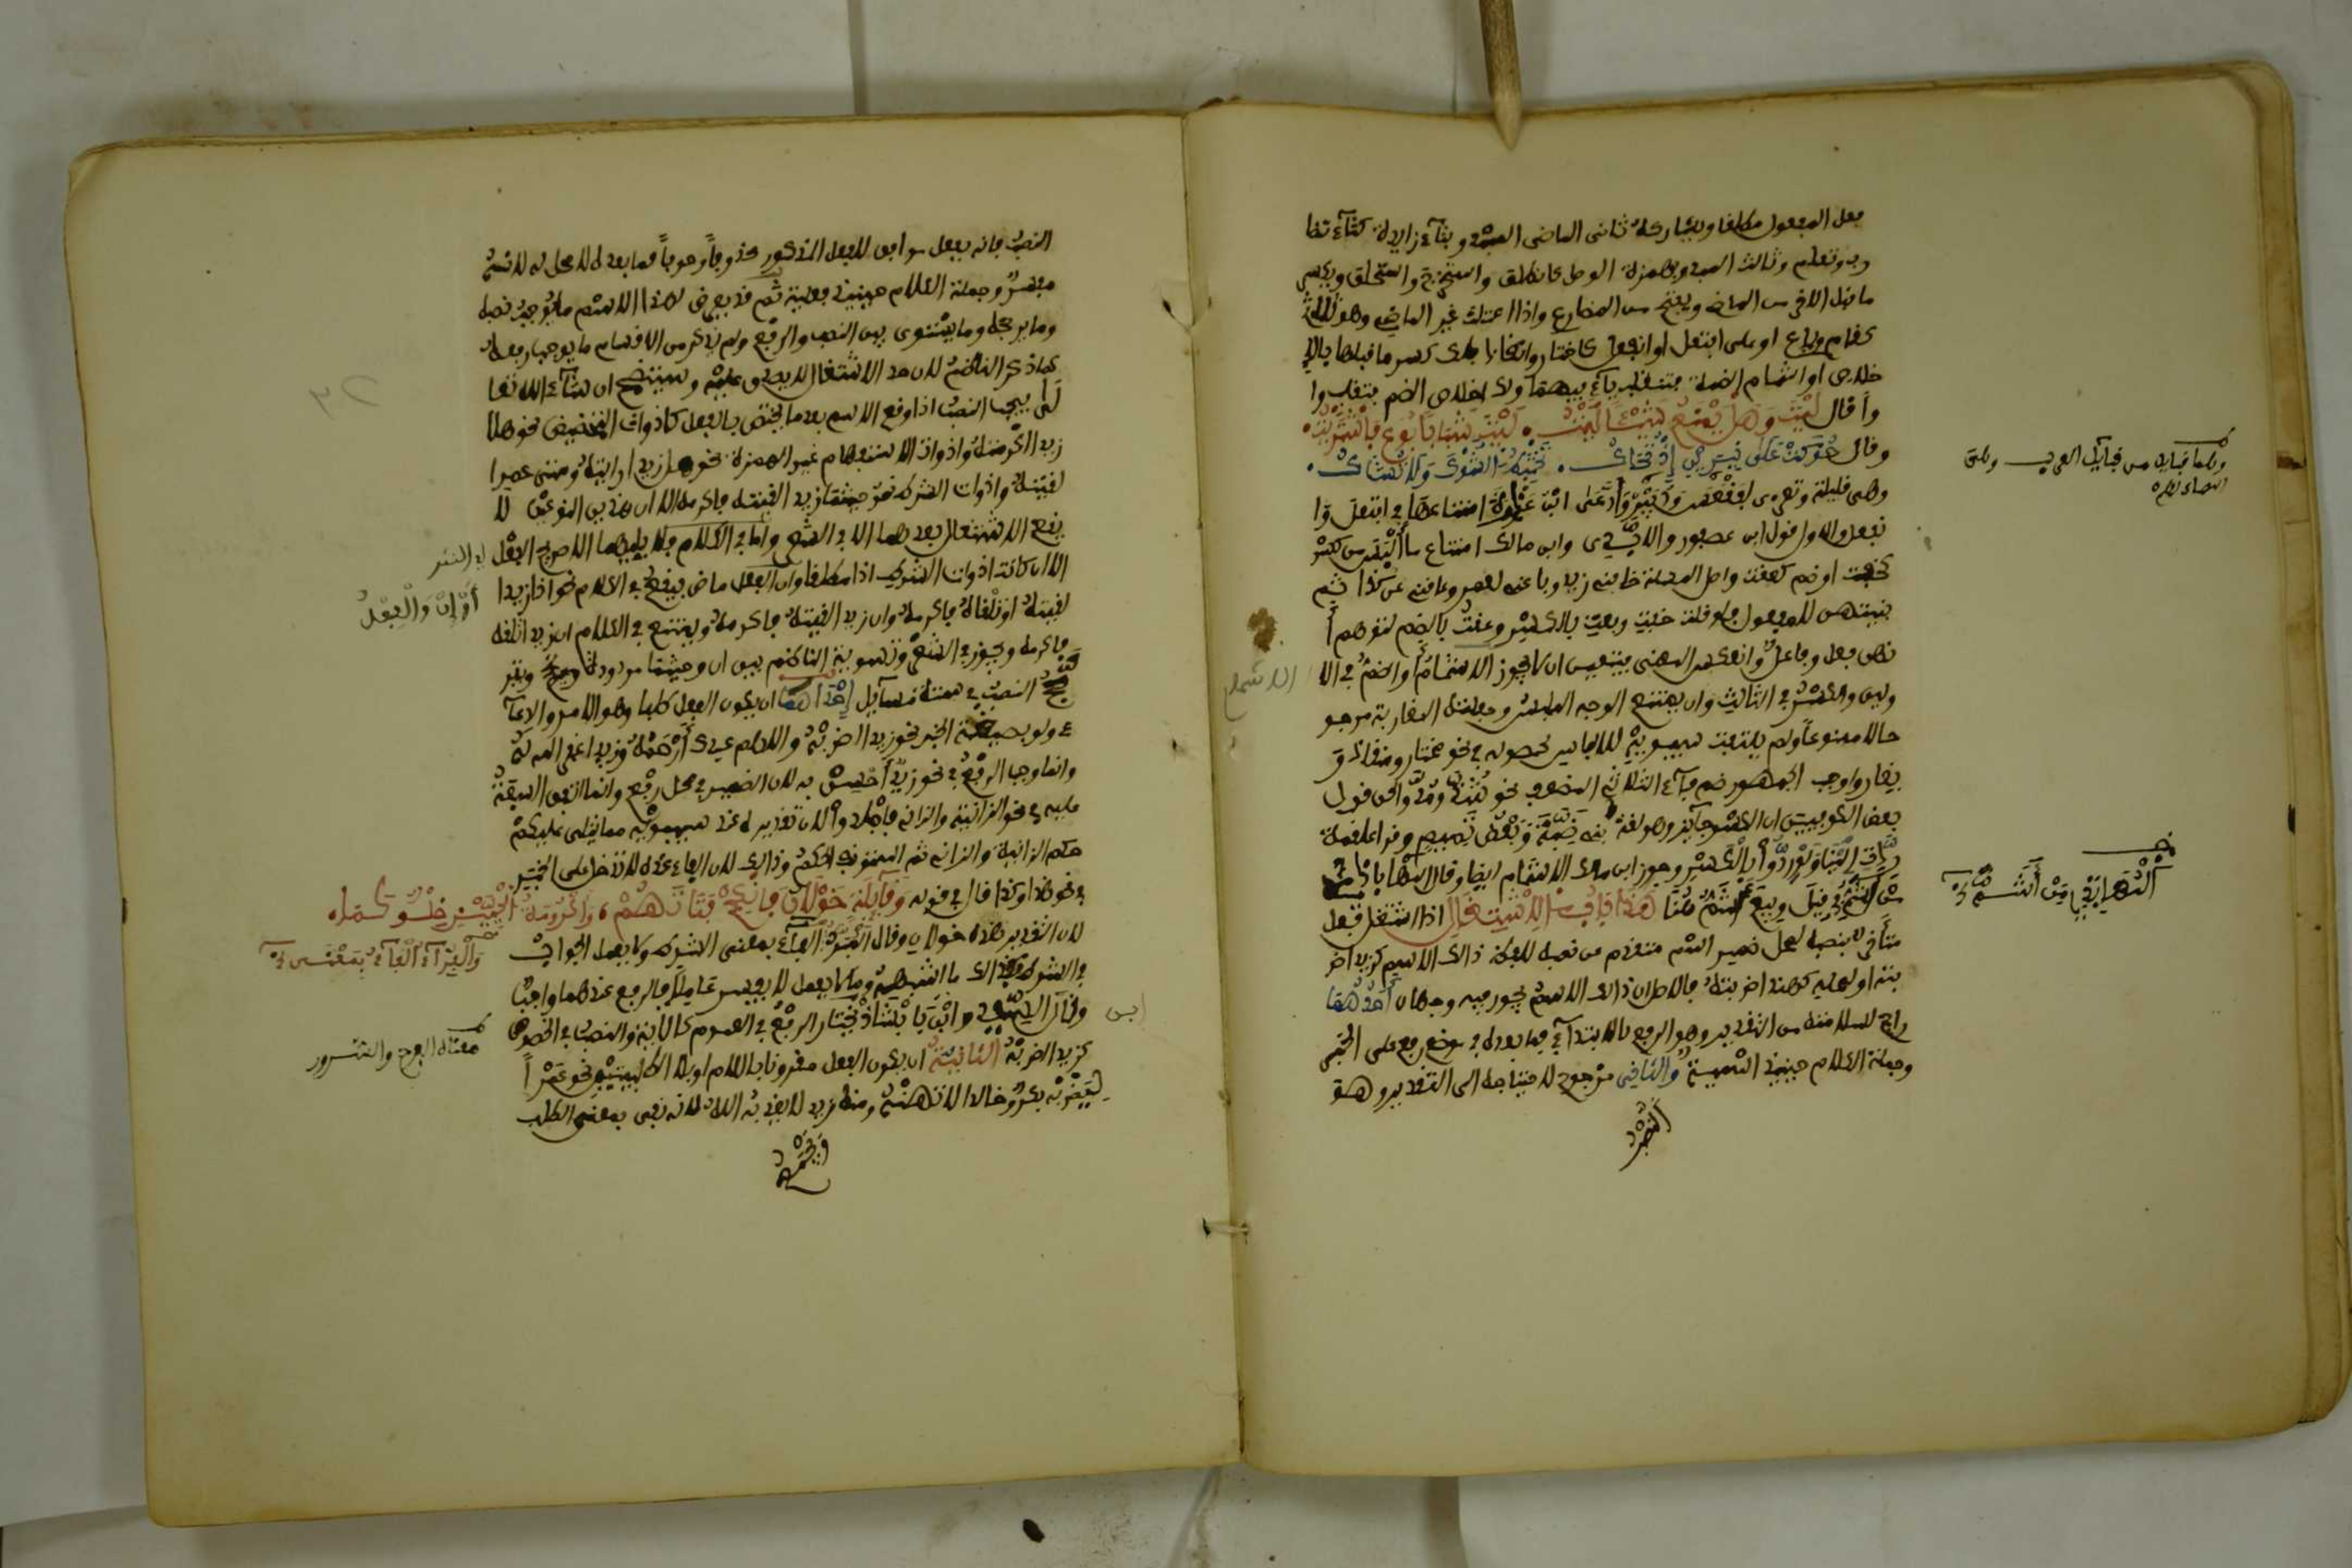 فعل المفعول مطلقا ويشاركه ثاني الماضي المبدو بتآء زايدة كتآء تضا
رب وتعلم وثالث المبدو بهمزة الوصل كانطلق واستخرج واستحلق ويكسر
ما قبل الاخر من الماضي ويفتح من المضارع واذا اعتلت عين الماضي وهو ثلاثي
كقام وباع او على افتعل او انفعل كاختار وانقاد فلك كسر ما قبلها باخ
خلاص او اشمام الضمة فتنقلب يآء فيهما ولك اخلاص الضم فتقلب وا
وا قال لَيْتَ وَهَلْ يَنْفَعُ شَيْئًا لَيْتُ . لَيْتَ شَبَابًا بُوعَ فَاشْتَرَيْتُ .
وقال حُوكَتْ عَلَى نِيرَيْنِ إِذْ تُحَاكُ . تَخْتَبِطُ الشَّوْكَ وَلَا تُشَاكُ .
وهي قليلة وتعزى لفقعس ودبير وادعى ابن عذرة امتناعها في افتعل وا
نفعل والاول قول ابن عصفور والابدي وابن مالك امتناع ما ألبس من كسر
كخفت اوضم كعفت واصل المسئلة خافني زيد وباعني لعمرو وعاقني عن كذا ثم
بنيتهن للمفعول فلو قلت خفت وبعت بالكسر وعقت بالضم لتوهم أ
نهن فعل وفاعل وانعكس المعنى فيتعين ان لا يجوز الا الاشمام أو الضم في الا
ولين والكسر في الثالث وان يمتنع الوجه الملبس وجعلته المغاربة مرجو
حالا ممنوعا ولم يلتفت سيبويه للالباس لحصوله في نحو مختار ومضار و
يضار واوجب الجمهور ضم فآء الثلاثي المضعف نحو شُدَّ ومُدَّ والحق قول
بعض الكوفيين ان الكسر جآئز وهو لغة بني ضبة وبعض تميم وقرا علقمة
رِدَّتْ إِلَيْنَا وَلَوْ رِدُّوا بالكسر وجوز ابن مالك الاشمام ايضا وقال المهاباذي
مَنْ اشم في قيل وبيع اشم هُنَا هَذَا بَابُ الاِشْتِغَالِ اذا اشتغل فعل
متأخر بنصبه لمحل ضمير اسم متقدم من نصبه للفظ ذالك الاسم كزيد اضر
بته او لمحله كهذا ضربته فالاصل ان ذالك الاسم يجوز فيه وجهان أَحَدُهُمَا
راجح لسلامته من التقدير وهو الرفع بالابتدآء فما بعده في موضع رفع على الخبر
وجملة الكلام حينئذ اسمية والثاني مرجوح لاحتياجه الى التقدير وهو
النصب
وهما قبايل من قبآئل العرب
الاشما
النصب فانه بفعل موافق للفعل المذكور محذوف وجوباً فما بعده لا محل له لانه
مفسر وجملة الكلام حينئذ فعلية ثم قد يعرض لهذا الاسم ما يوجب نصبه
وما يرجحه وما يستوي بين النصب والرفع ولم نذكر من الاقسام ما يوجب رفعه
كما ذكر الناظم لان حد الاشتغال لا يصدق عليه وسيتضح ان شآء الله تعا
لى يجب النصب اذا وقع الاسم بعد ما يختص بالفعل كادوات التحضيض نحو هلا
زيدا اكرمته وادوات الاستفهام غير الهمزة نحو هل زيدا رايته ومتى عمرا
لقيته وادوات الشرط نحو حيثما زيدا لقيته فاكرمه الا ان هذين النوعين لا
يقع الاشتغال بعدهما الا في الشعر وأما في الكلام فلا يليهما الا صريح الفعل
الا ان كانت ادوات الشرط اذا مطلقا وان والفعل ماض فيقع في الكلام نحو اذا زيدا
لقيته او تلقاه فاكرمه وان زيدا لقيته فاكرمه ويمتنع في الكلام ان زيدا تلقه
فاكرمه ويجوز في الشعر وتسوية الناظم بين ان وحيثما مردودة ويتر
جح النصب في ستة مسآيل إِحْدَاهَا ان يكون الفعل طلبا وهو الامر والدعآ
ء ولو بصيغة الخبر نحو زيدا اضربه واللهم عبدك أَرْحَمْهُ وزيدا غفر الله له
وانما وجب الرفع في نحو زيد أحسن به لان الضمير في محل رفع وانما اتفق السبعة
عليه في نحو الزانية والزاني فاجلدوا لان تقديره عند سيبويه مما يتلى عليكم
حكم الزانية والزاني ثم استونف الحكم وذالك لان الفاء عنده لا تدخل على الخبر
في نحو هذا وكذا قال في قوله وَقَآئِلَةٍ خَوْلَانُ فَانْكِحْ فَتَاتَهُمْ ، وَاكْرُومَةُ الْحَيَّيْنِ خِلْوٌ كَمَا
لان التقدير هذه خولان وقال المبرد الفآء بمعنى الشرط ولا يعمل الجواب
في الشرط فكذالك ما اشبههما وما لا يعمل لا يفسر عاملا فالرفع عندهما واجب
وقال ابن السيد وابن بابشاذ يختار الرفع في العموم كالاية والنصب في الخصوص
كزيدا اضربه الثَّانِيَةُ ان يكون الفعل مقرونا باللام او بلا الطلبيتين نحو عَمْراً
لِيَضْرِبْهُ بكر وخالدا لا تهنه ومنه زيد لا يعذبه الله لانه نفي بمعنى الطلب
في النثر
أَوْ إِنْ وَالْفِعْلُ
معناه الفرح والسرور